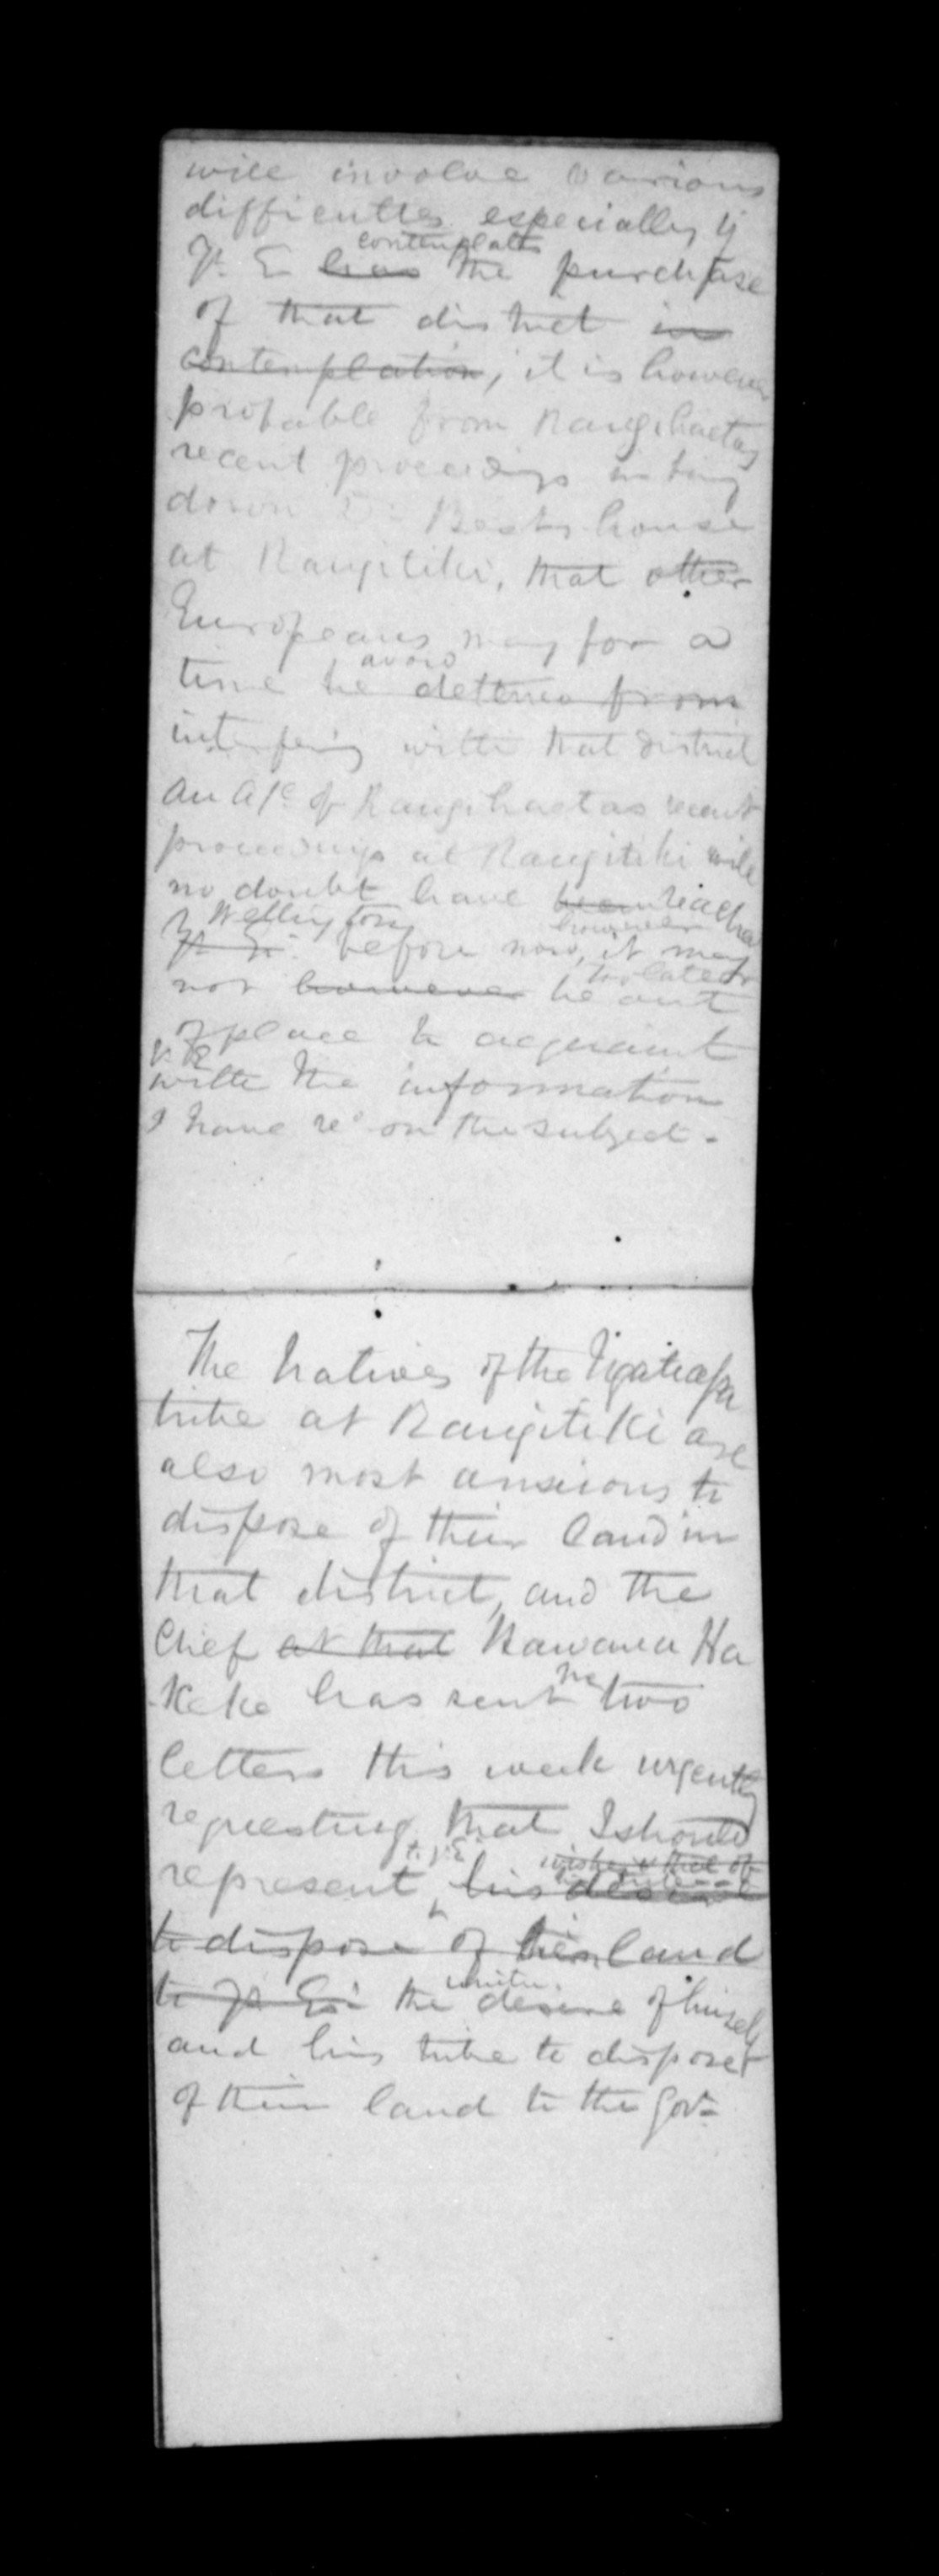 will involve various
difficultes especially if
contemplates
Y. E. has the purchase
of that district in
contemplation, it is however
probable from Rangihaetas
recent proceedings in
down Dr Bests house
at Rangitiki, that other
Europeans may for a
avoid
time be deterred from
interfering with that district
An a/c of Rangihaetas recent
proceedings at Rangitiki will
no doubt have been reached
Wellington however
Y. E. before now, it may
not however be out
of place to acquaint
Y. E.
with the information
I have recd on the subject.
The Natives of the Ngatiapa
tribe at Rangitiki are
also most anxious to
dispose of their land in
that district, and the
Chief at that Kawana Ha
keke has sent me two
letters this week urgently
requesting that I should
to Y. E. wishes & that of
represent his desire
to dispose of his land
to Y. E. the desire of himself
and his tribe to dispose
of their land to the Govt